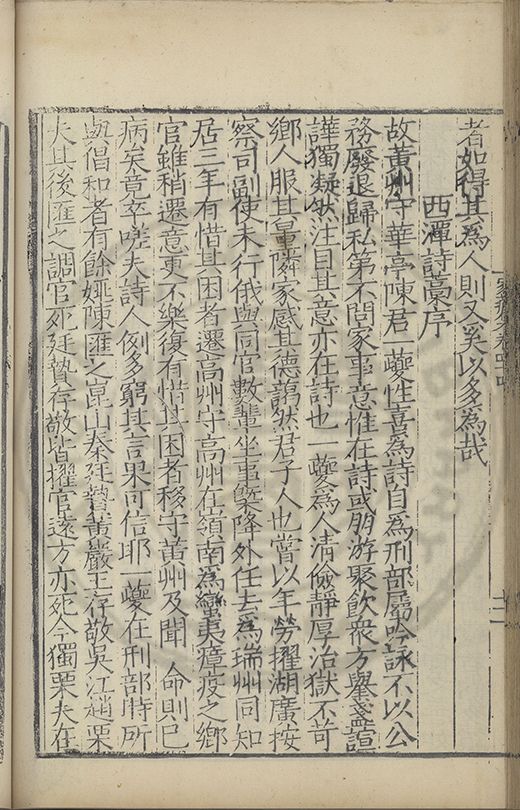 者如得其為人則又奚以多為哉
西潭詩稾序
故黃州守華亭陳君一夔性喜為詩自為刑部屬吟詠不以公
務廢退歸私第不問家事意惟在詩或朋游聚飲衆方舉盞諠
譁獨凝然注目其意亦在詩也一夔為人清儉靜厚治獄不苛
鄉人服其量隣家感其德藹然君子人也嘗以年勞擢湖廣按
察司副使未行俄與同官數輩坐事槩降外任去為瑞州同知
居三年有惜其困者遷高州守高州在嶺南為蠻夷瘴疫之鄉
官雖稍遷意更不樂復有惜其困者移守黃州及聞 命則已
病矣竟卒嗟夫詩人例多窮其言果可信耶一夔在刑部時所
與倡和者有餘姚陳匯之崑山秦廷贄黃巖王存敬吳江趙栗
夫其後匯之調官死廷贄存敬皆擢官遠方亦死今獨栗夫在